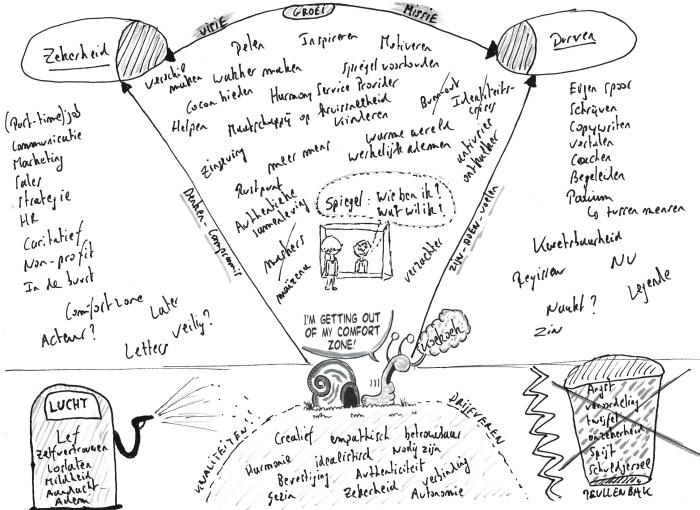 VISIE
GROEI
MISSIE
Zekerheid
Durven
Delen
Inspireren
Motiveren
verschil
maken
wakker maken
Spiegel voorhouden
Cocon bieden
Harmony Service Provider
Helpen
Maatschappij op kruissnelheid
Kinderen
Burnout
Identiteits-
crisis
Zingeving
meer mens
warme wereld
werkelijk ademen
antivirus
onthaaster
Rustpunt
Authentieke
samenleving
Spiegel: wie ben ik?
wat wil ik?
makkers
maizena
verzachter
Denken-Compromis
ZIJN-DOEN-voelen
(Part-time) job
Communicatie
Marketing
Sales
Strategie
HR
Caritatief
Non-profit
In de buurt
Comfortzone
Later
Acteur?
Veilig?
Letters
Eigen spoor
Schrijven
Copywriten
Vertalen
Coachen
Begeleiden
Podium
↳ tussen mensen
Kwetsbaarheid
Regisseur
NU
Legende
Naakt?
Zin
I'M GETTING OUT
OF MY COMFORT
ZONE!
Koekoek
LUCHT
Lef
Zelfvertrouwen
Loslaten
Mildheid
Aandacht
Adem
KWALITEITEN!
DRIJFVEREN
Creatief
empathisch
betrouwbaar
Harmonie
idealistisch
nodig zijn
Bevestiging
Authenticiteit
verbinding
Gezin
Zekerheid
Autonomie
Angst
veroordeling
twijfel
onzekerheid
Spijt
Schuldgevoel
PRULLENBAK